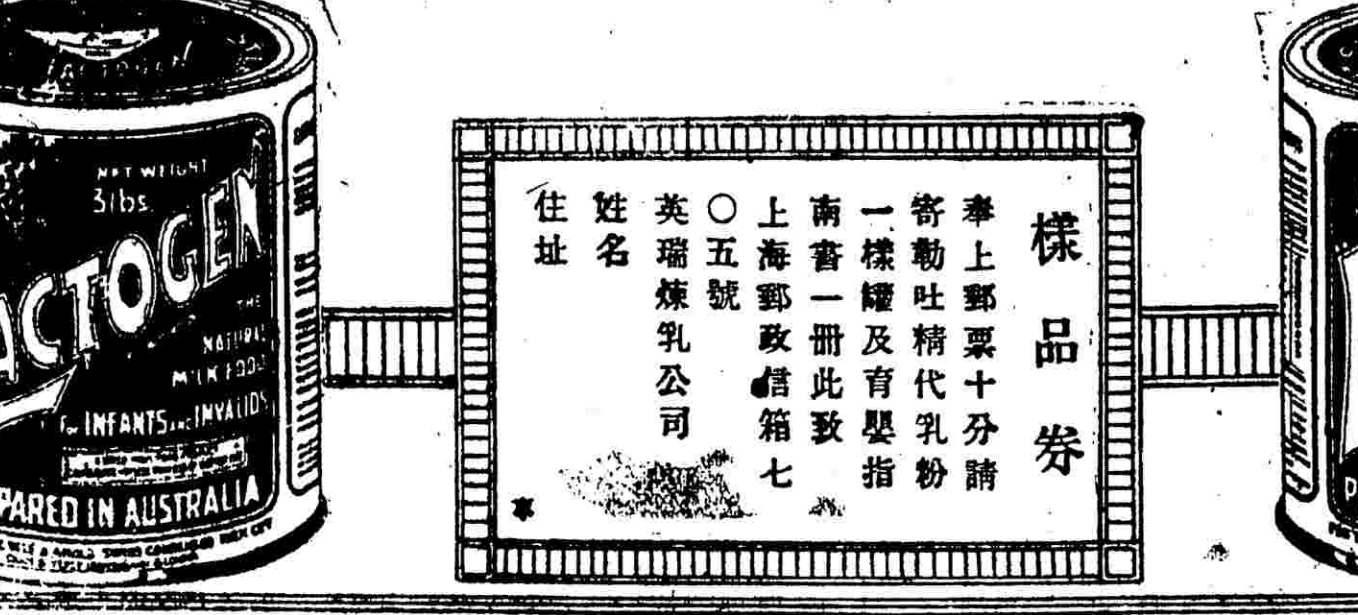 LACTOGEN
NET WEIGHT
3lbs.
ACTOGEN
THE
NATURAL
MILK FOOD
For INFANTS AND INVALIDS
PARED IN AUSTRALIA
樣品券
奉上郵票十分請
寄勒吐精代乳粉
一樣罐及育嬰指
南書一冊此致
上海郵政信箱七
〇五號
英瑞煉乳公司
姓名
住址